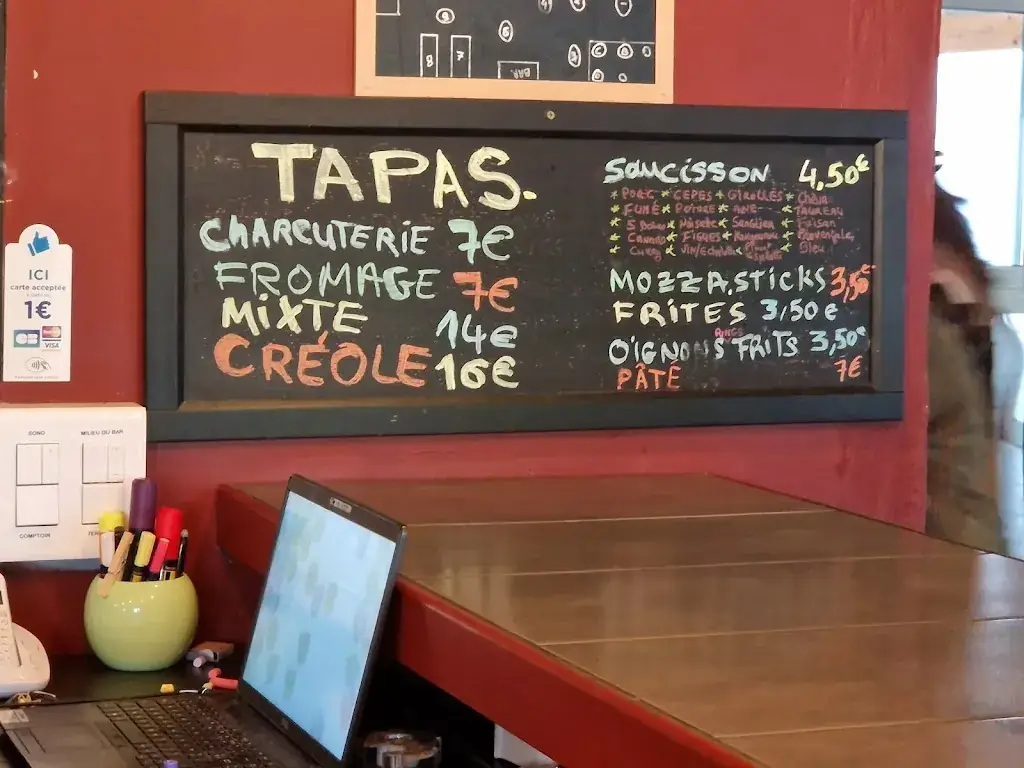 8
7
6
5
BAR
TAPAS.
CHARCUTERIE 7€
FROMAGE 7€
MIXTE 14€
CRÉOLE 16€
SAUCISSON 4,50€
* PORC * CEPES * GIROLLES * Chèvre
* FUMÉ * POIVRE * ANE * TAUREAU
* Sanglier * Faison
* Canard * Figues * Provençale
* Bleu
MOZZA.STICKS 3,50€
FRITES 3,50€
O'IGNONS RINGS FRITS 3,50€
PÂTÉ 7€
ICI
carte acceptée
1€
CB
VISA
SONO
MILIEU DU BAR
COMPTOIR